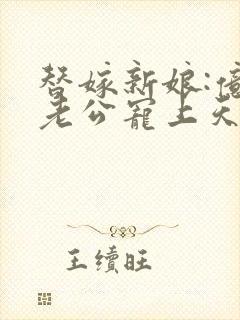 替嫁新娘:億
老公寵上天
王續旺